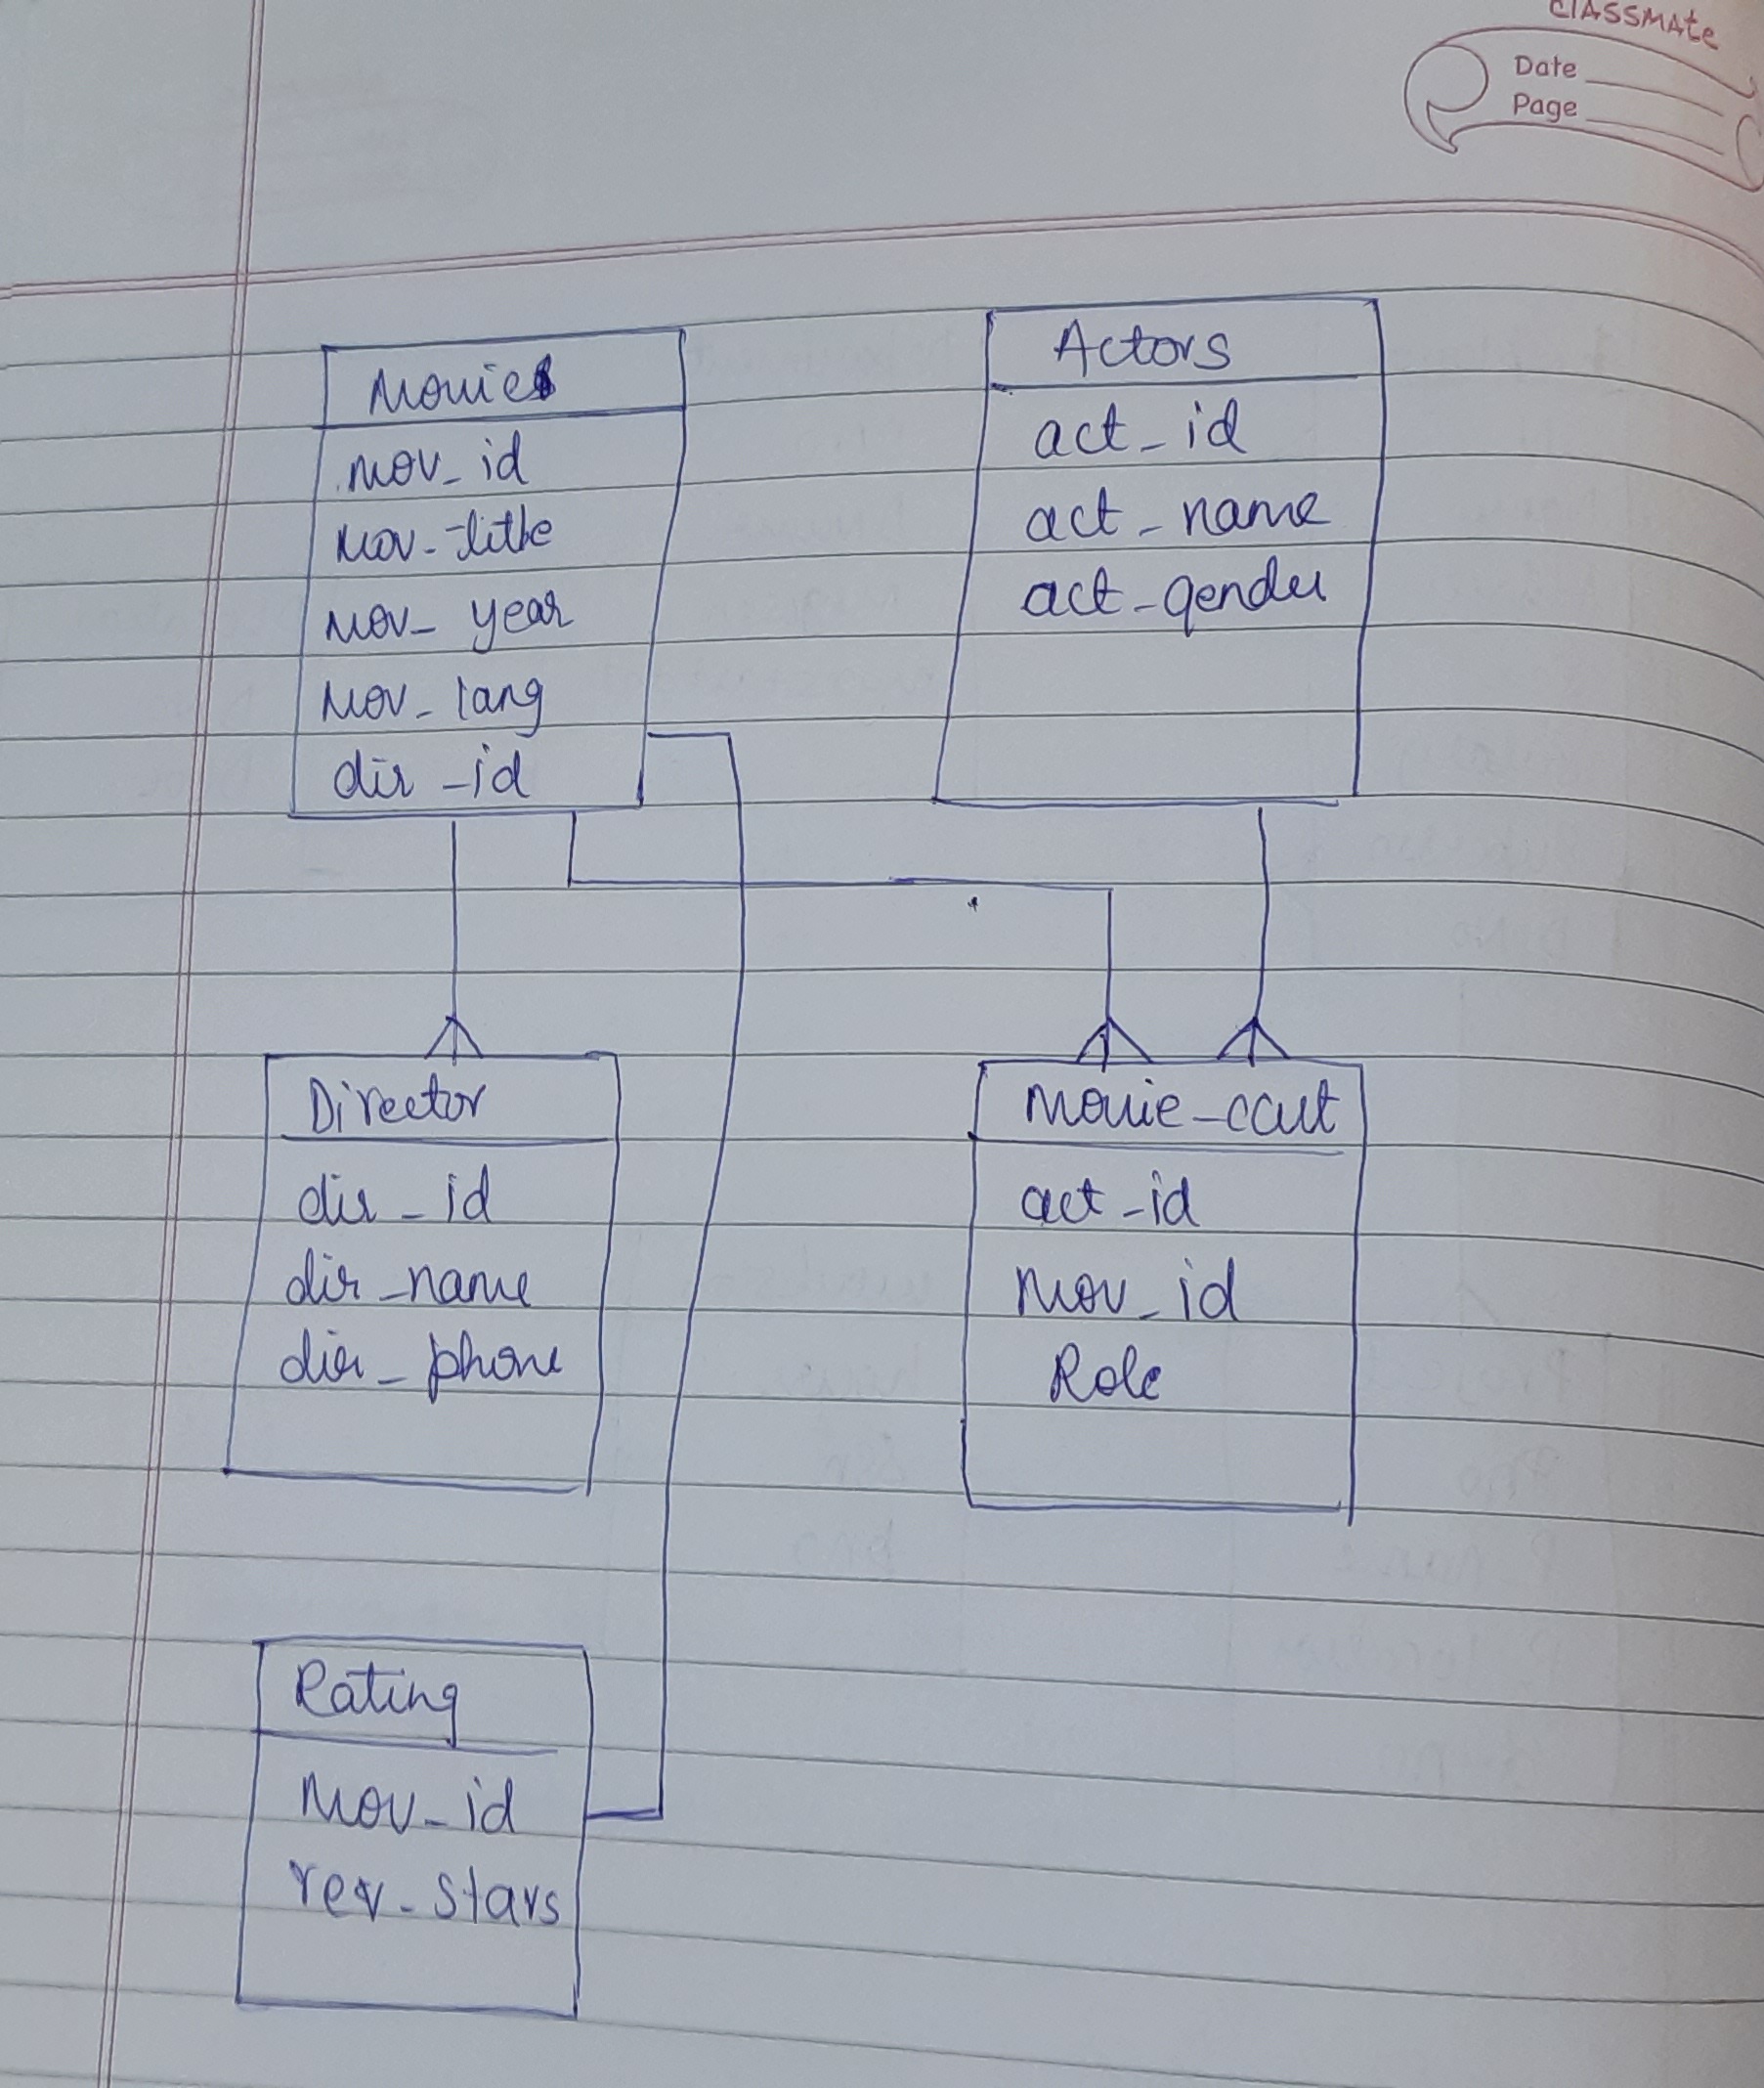 classmate
Date
Page
Movies
mov_id
mov-title
mov_year
mov_lang
dir_id
Actors
act_id
act_name
act_gender
Director
dir_id
dir_name
dir_phone
Movie_cast
act_id
mov_id
Role
Rating
mov_id
rev_stars